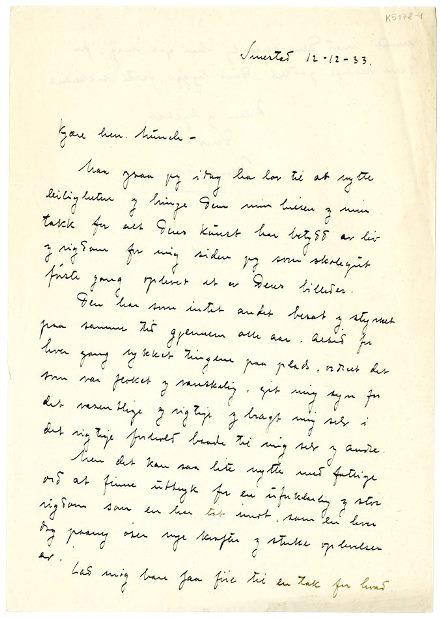 K5172-1
Smestad 12-12-33.
Kjære herr Munch –
Maa jeg idag ha lov til at nytte
leiligheten og bringe Dem min hilsen og min
takk for alt Deres kunst har betydd av liv
og rigdom for mig siden jeg som skolegut
første gang oplevet et av Deres billeder.
Den har som intet andet beraget og styrket
paa samme tid gjennem alle aar. Altid for
hver gang rykket tingene paa plads, rettet det
som var jerket og vanskelig, git mig syn for
det væsentlige og rigtige og bragt mig selv i
det rigtige forhold baade til mig selv og andre.
Men det kan saa lite nytte med fattige
ord at finne uttryk for en uforklarlig og stor
rigdom som en har tat imot, som en hver
dag paany øser nye krefter og sterke oplevelser
av.
Lad mig bare faa føie til en tak for hvad